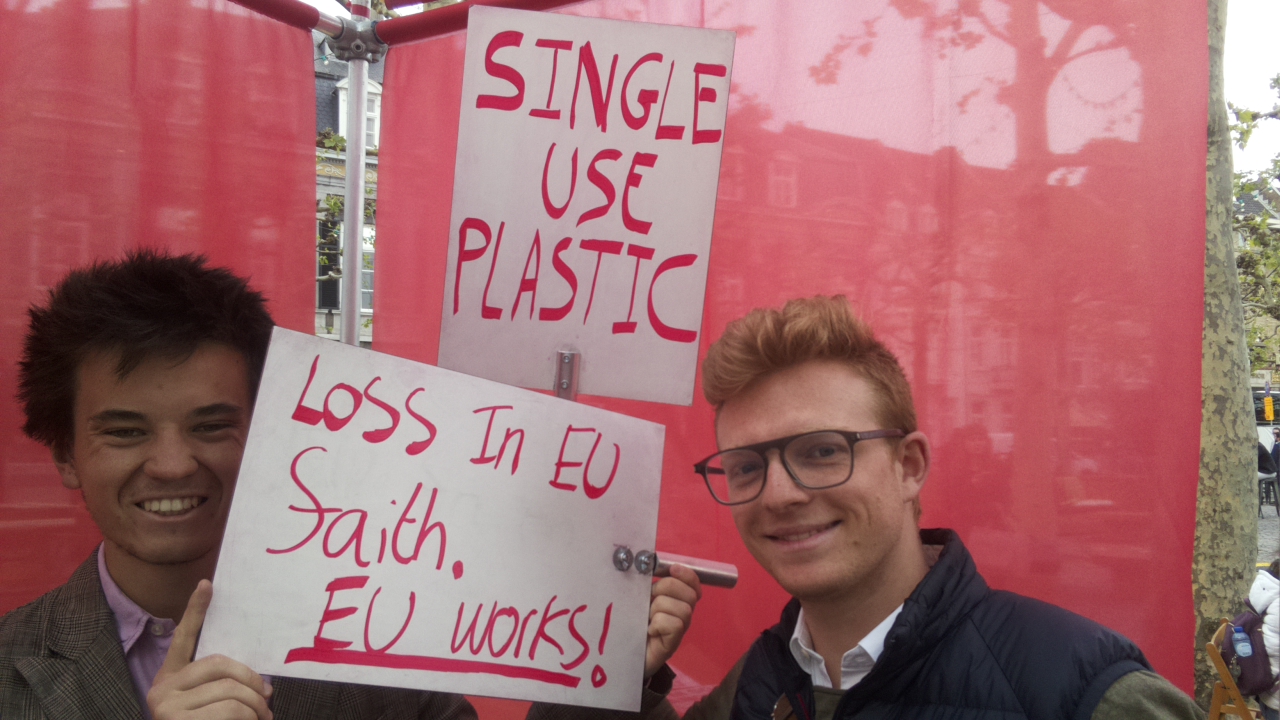 SINGLE
USE
PLASTIC
Loss In EU
faith.
EU works!